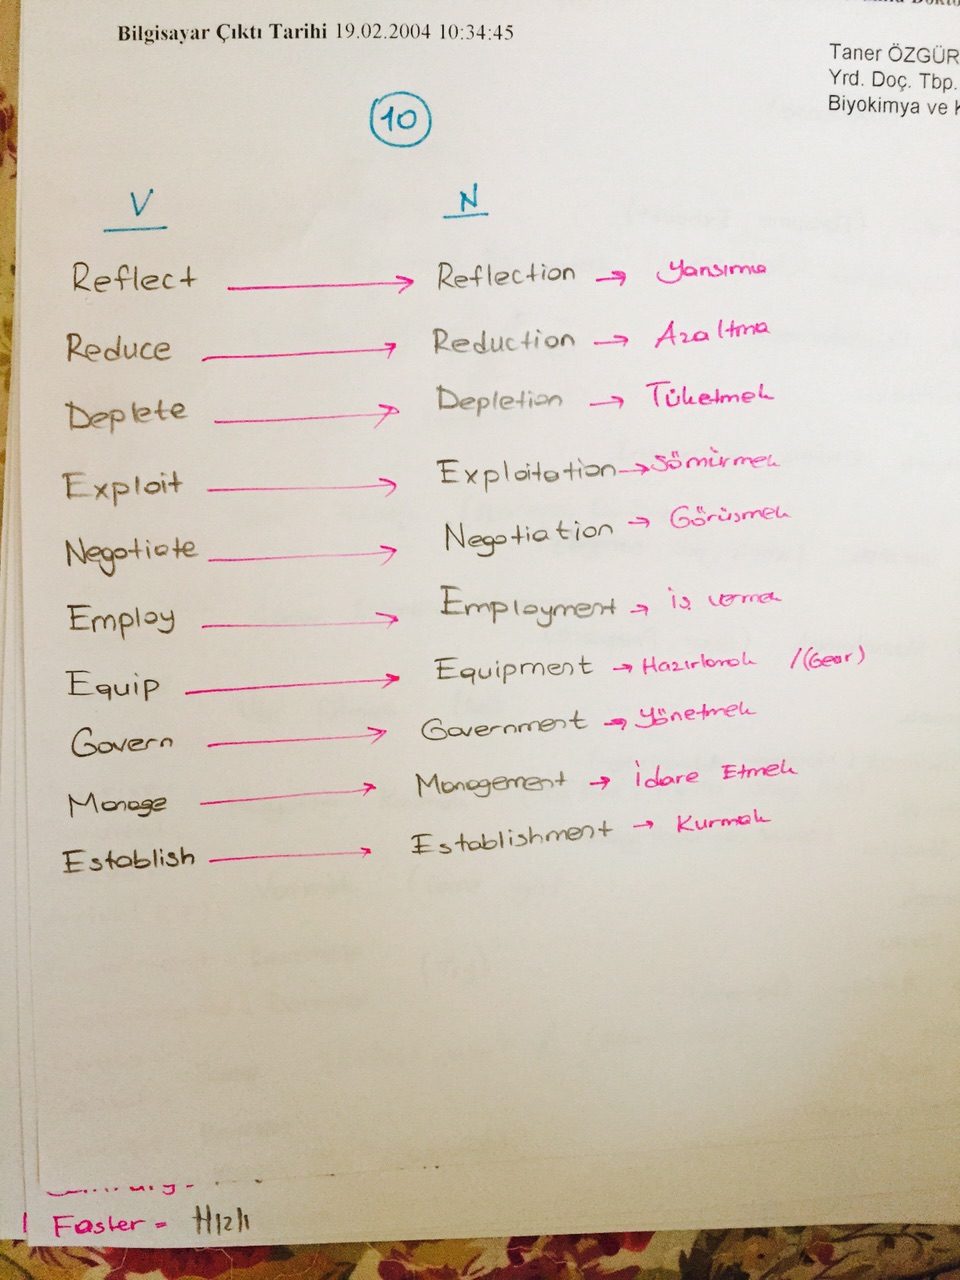 Bilgisayar Çıktı Tarihi 19.02.2004 10:34:45
Taner ÖZGÜR
Yrd. Doç. Tbp.
Biyokimya ve K
10
V N
Reflect → Reflection → Yansıma
Reduce → Reduction → Azaltma
Deplete → Depletion → Tüketmek
Exploit → Exploitation → Sömürmek
Negotiate → Negotiation → Görüşmek
Employ → Employment → iş verme
Equip → Equipment → Hazırlamak / (Gear)
Govern → Government → Yönetmek
Manage → Management → İdare Etmek
Establish → Establishment → Kurmak
Faster = Hızlı